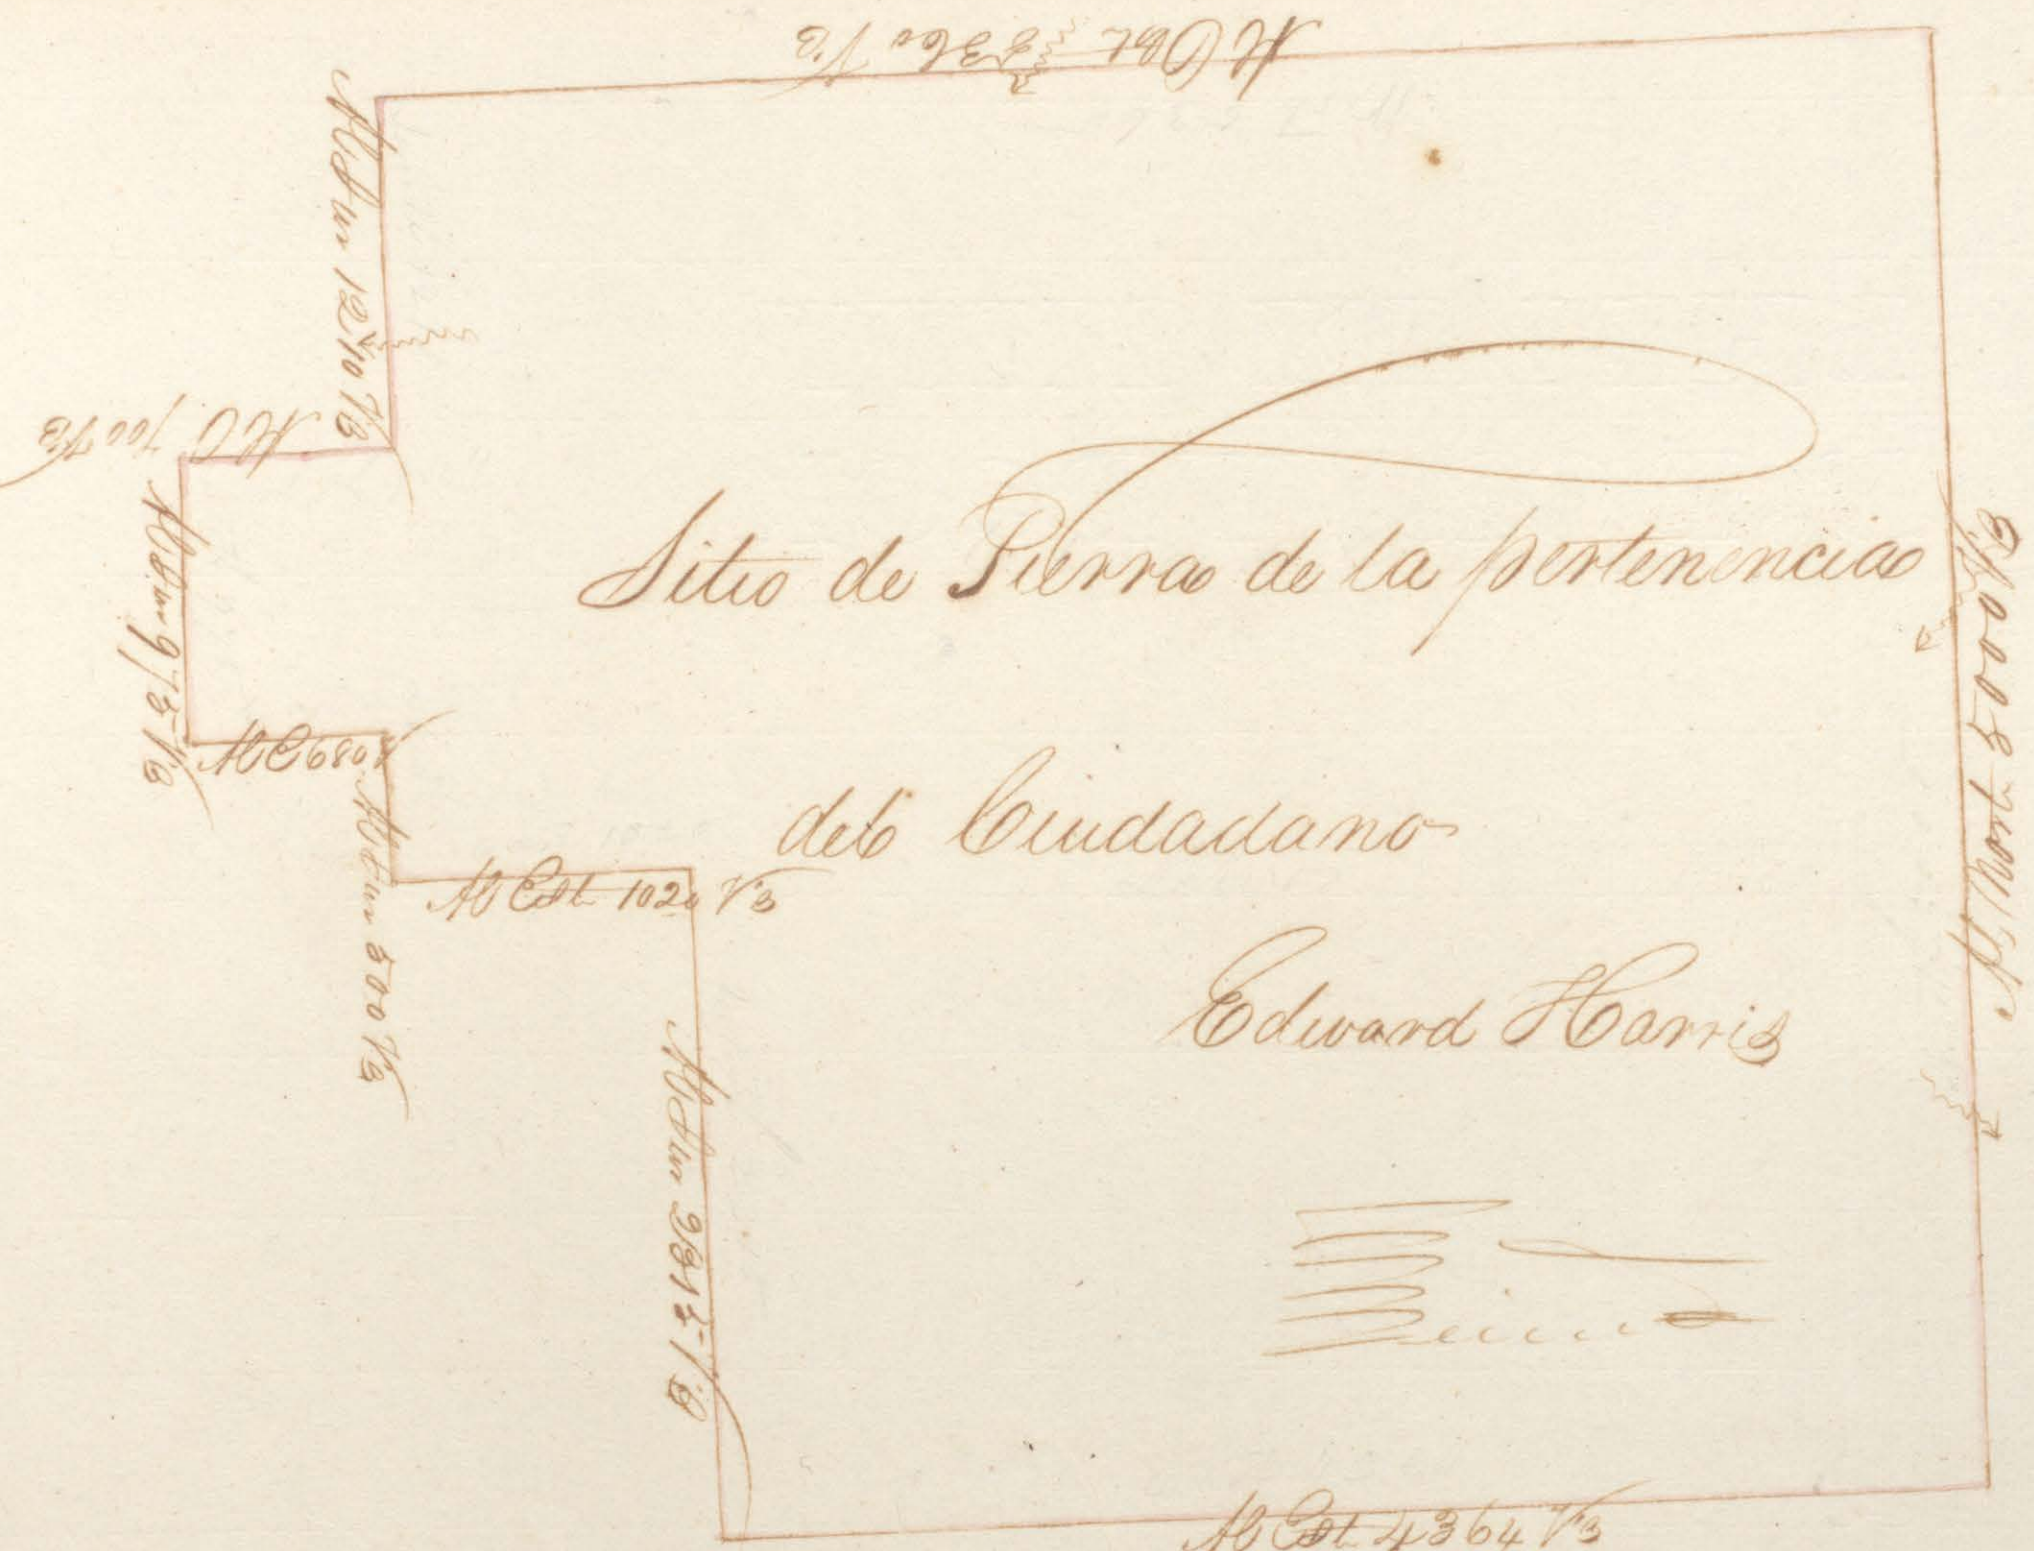 Al Ost 5360 Vs
Al Sur 1210 Vs
Al O 700 Vs
Al Sur 975 Vs
Al E 680 v
Al Sur 500 Vs
Al Est 1020 Vs
Al Sur 2315 Vs
Al Est 4364 Vs
Al Norte 5000 Vs
Sitio de Tierra de la pertenencia
del Ciudadano
Edward Harris